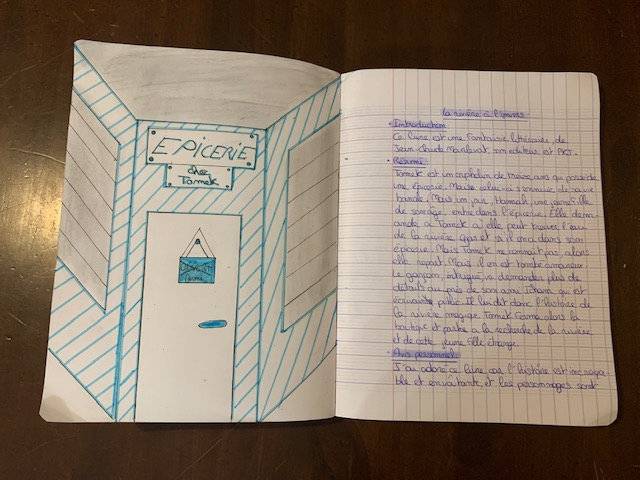 EPICERIE
chez
Tomek
La rivière à l'envers
• Introduction
Ce livre est une fantaisie littéraire de
Jean-Claude Mourlevat son éditeur est PKJ.
• Résumé
Tomek est un orphelin de treize ans qui possède
une épicerie. Mais celui-ci s'ennuie de sa vie
banale. Mais un jour, Hannah, une jeune fille
de son âge, entre dans l'épicerie. Elle dem-
ande à Tomek si elle peut trouver l'eau
de la rivière Qjar et s'il en a dans son
épicerie. Mais Tomek ne connait pas alors
elle repart. Mais il en est tombé amoureux.
Le garçon, intrigué, va demander plus de
détails au près de son ami Icham qui est
écrivain public. Il lui dit donc l'histoire de
la rivière magique. Tomek ferme alors la
boutique et part à la recherche de la rivière
et de cette jeune fille étrange.
• Avis personnel
J'ai adoré ce livre car l'histoire est incroya-
ble et envoûtante, et les personnages sont